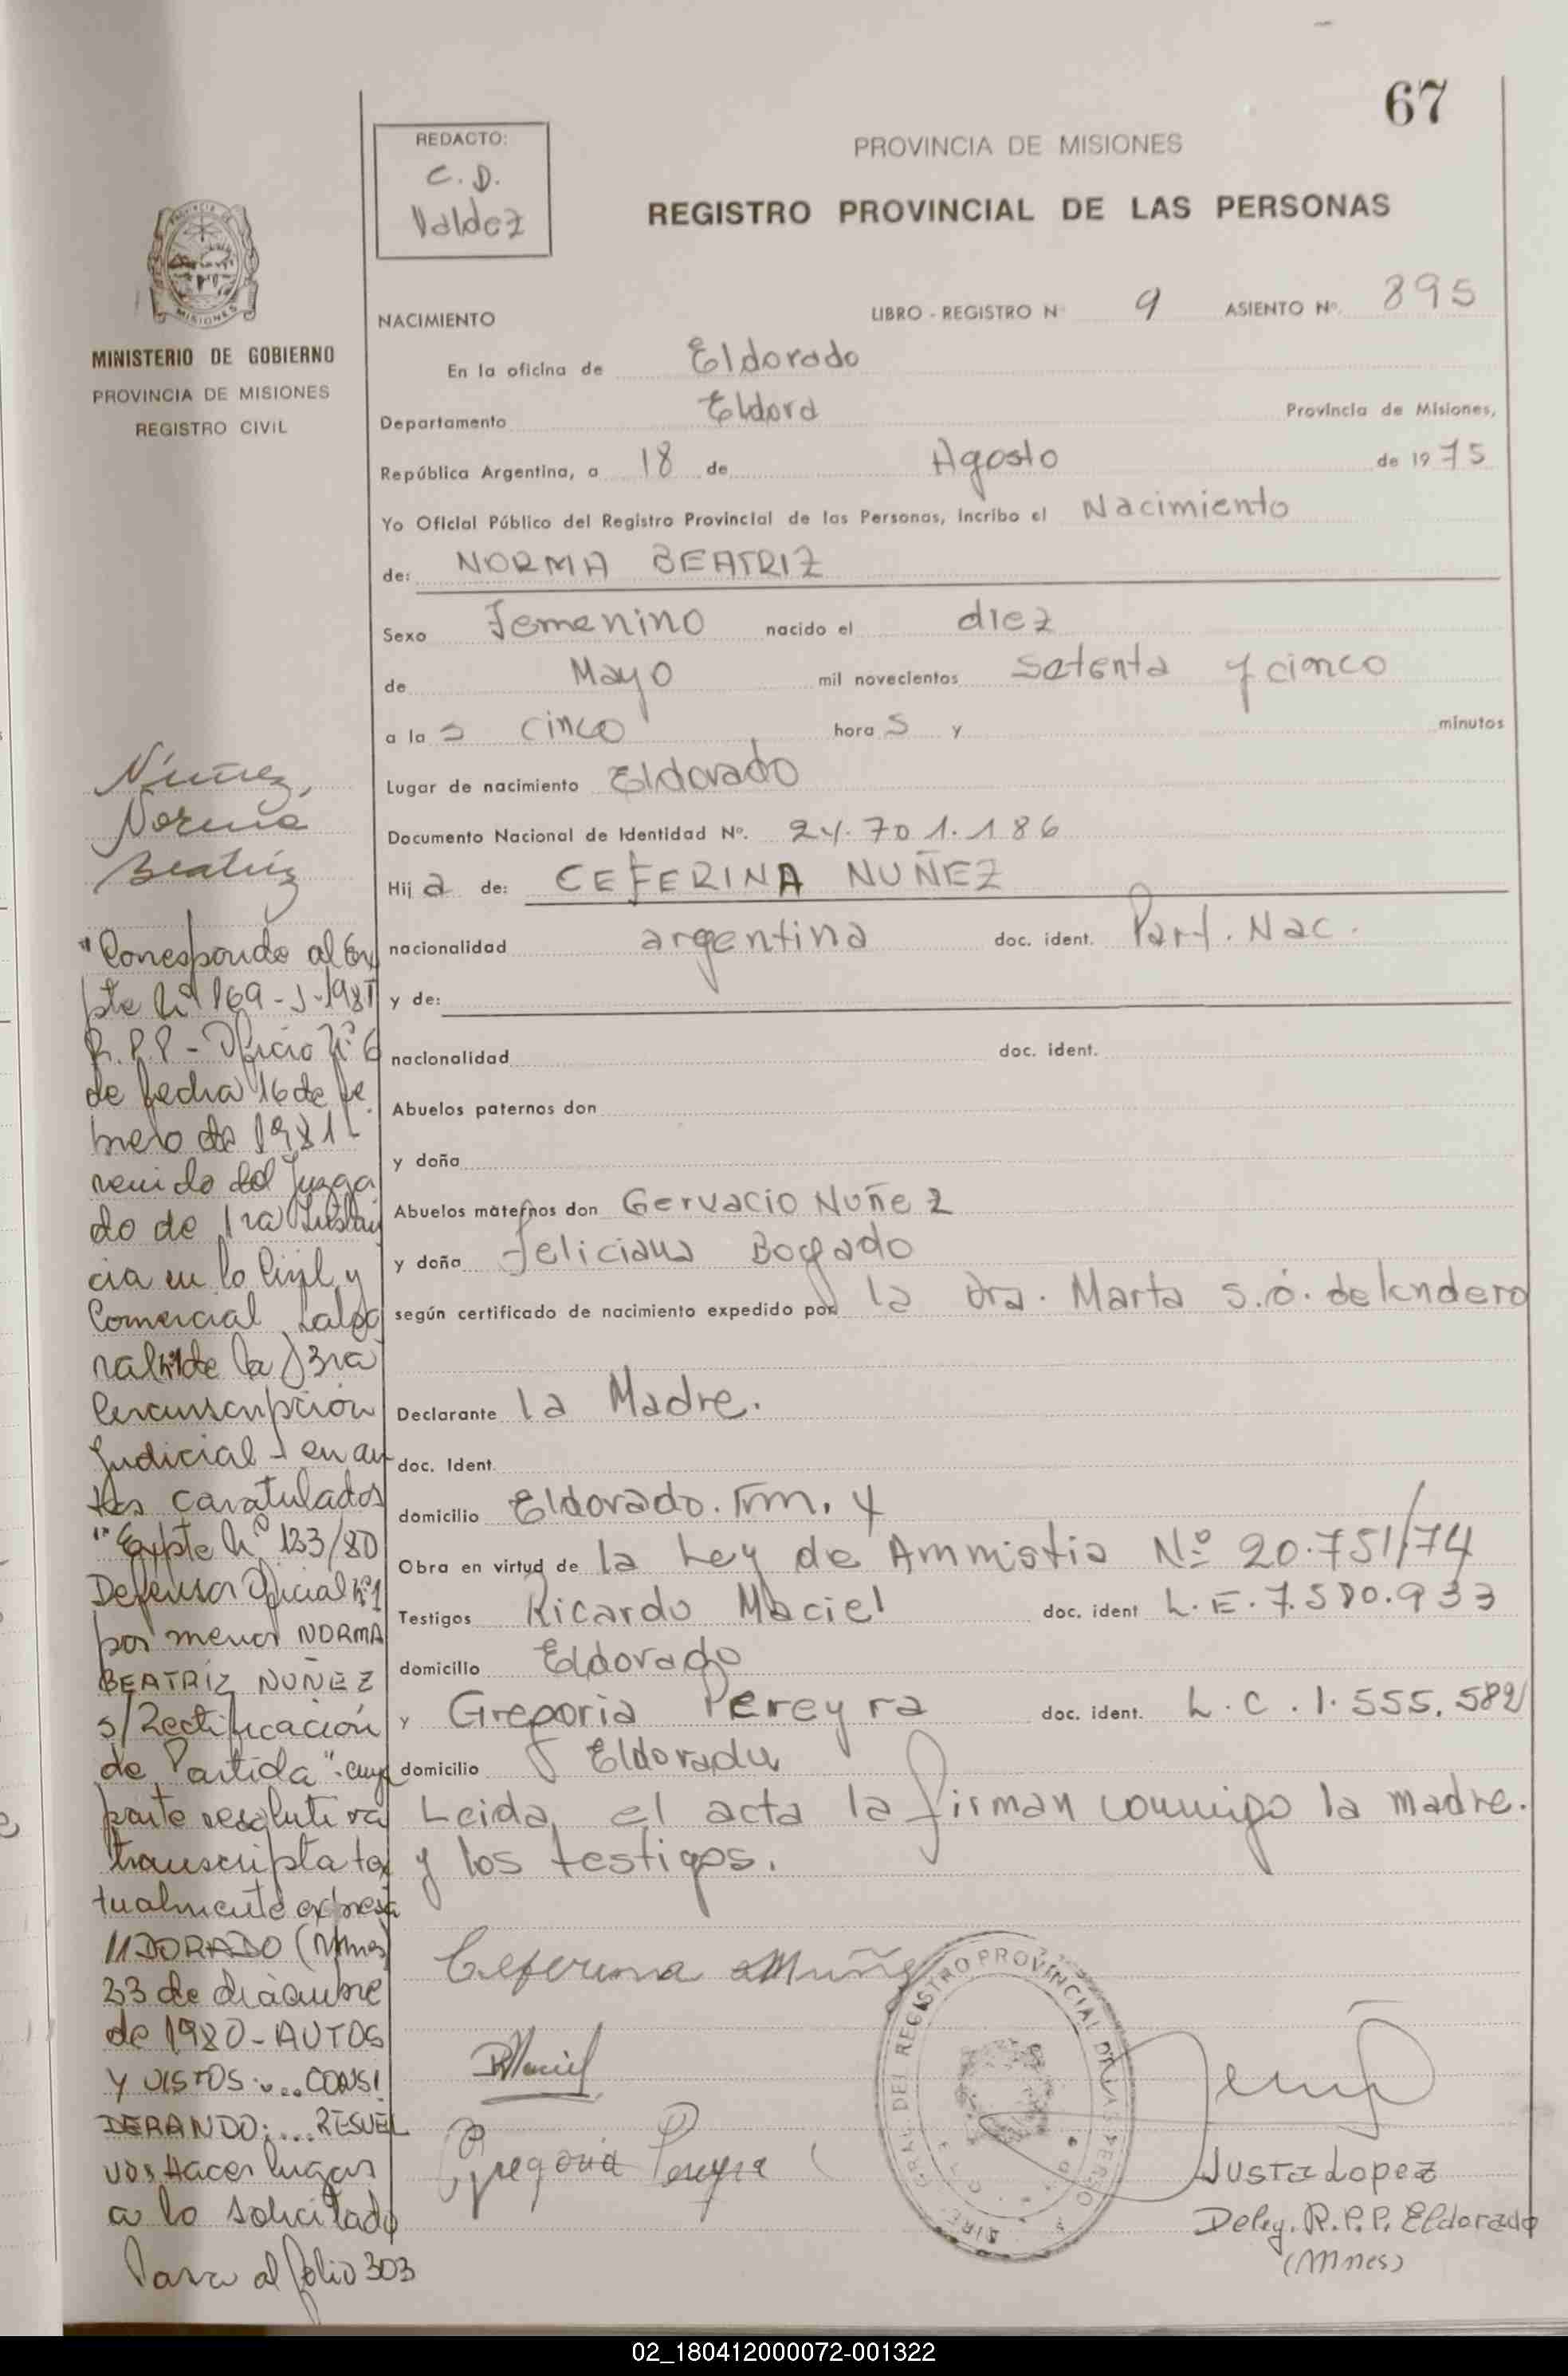 67
REDACTO:
C. D.
Valdez
PROVINCIA DE MISIONES
REGISTRO PROVINCIAL DE LAS PERSONAS
MINISTERIO DE GOBIERNO
PROVINCIA DE MISIONES
REGISTRO CIVIL
NACIMIENTO LIBRO - REGISTRO Nº 9 ASIENTO Nº. 895
En la oficina de Eldorado
Departamento Eldord Provincia de Misiones,
República Argentina, a 18 de Agosto de 1975
Yo Oficial Público del Registro Provincial de las Personas, incribo el Nacimiento
de: NORMA BEATRIZ
Sexo Femenino nacido el diez
de Mayo mil novecientos setenta y cinco
a la s cinco hora s y minutos
Lugar de nacimiento Eldorado
Documento Nacional de Identidad Nº. 24.701.186
Hij a de: CEFERINA NUÑEZ
nacionalidad argentina doc. ident. Part. Nac.
y de:
nacionalidad doc. ident.
Abuelos paternos don
y doña
Abuelos maternos don Gervacio Nuñez
y doña Feliciana Bogado
según certificado de nacimiento expedido por la Dra. Marta S. O. de
Declarante la Madre.
doc. Ident.
domicilio Eldorado. Km. 4
Obra en virtud de la Ley de Ammistia Nº 20.751/74
Testigos Ricardo Maciel doc. ident L. E. 7.580.933
domicilio Eldorado
y Gregoria Pereyra doc. ident. L. C. 1.555.582
domicilio Eldorado
Leida el acta la firman conmigo la madre.
y los testigos.
Ceferina Nuñez
RMaciel
Gregoria Pereyra
DIRE. GRAL. DEL REGISTRO PROVINCIAL DE LAS PERSO
Justa Lopez
Deleg. R.P.P. Eldorado
(Mnes)
Núñez,
Norma
Beatriz
"Corresponde al Ex
pte Nº 169-J-1981
R.P.P - Oficio Nº 6
de fecha 16 de fe
brero de 1981
venido del Juzga
do de 1ra Instan
cia en lo Civil y
Comercial Labo
ral Nº1 de la 3ra
Circunscripción
Judicial - en au
tos caratulados
"Expte Nº 133/80
Defensor Oficial Nº1
por menor NORMA
BEATRIZ NUÑEZ
s/Rectificación
de Partida" cuya
parte resolutiva
transcripta tex
tualmente expresa
//DORADO (Mnes)
23 de diciembre
de 1980 - AUTOS
Y VISTOS:... CONSI
DERANDO:... RESUEL
VO: Hacer lugar
a lo solicitado
Pasa al folio 303
02_180412000072-001322